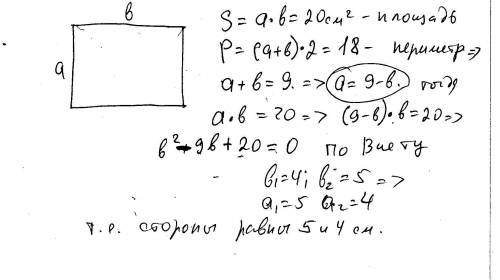 в
S = a·в = 20 см² – площадь
P = (a+в)·2 = 18 – периметр =>
a
a+в = 9. => a = 9-в. тогда
a·в = 20 => (9-в)·в = 20 =>
в² - 9в + 20 = 0 по Виету
в₁=4; в₂=5 =>
a₁=5 a₂=4
т.е. стороны равны 5 и 4 см.